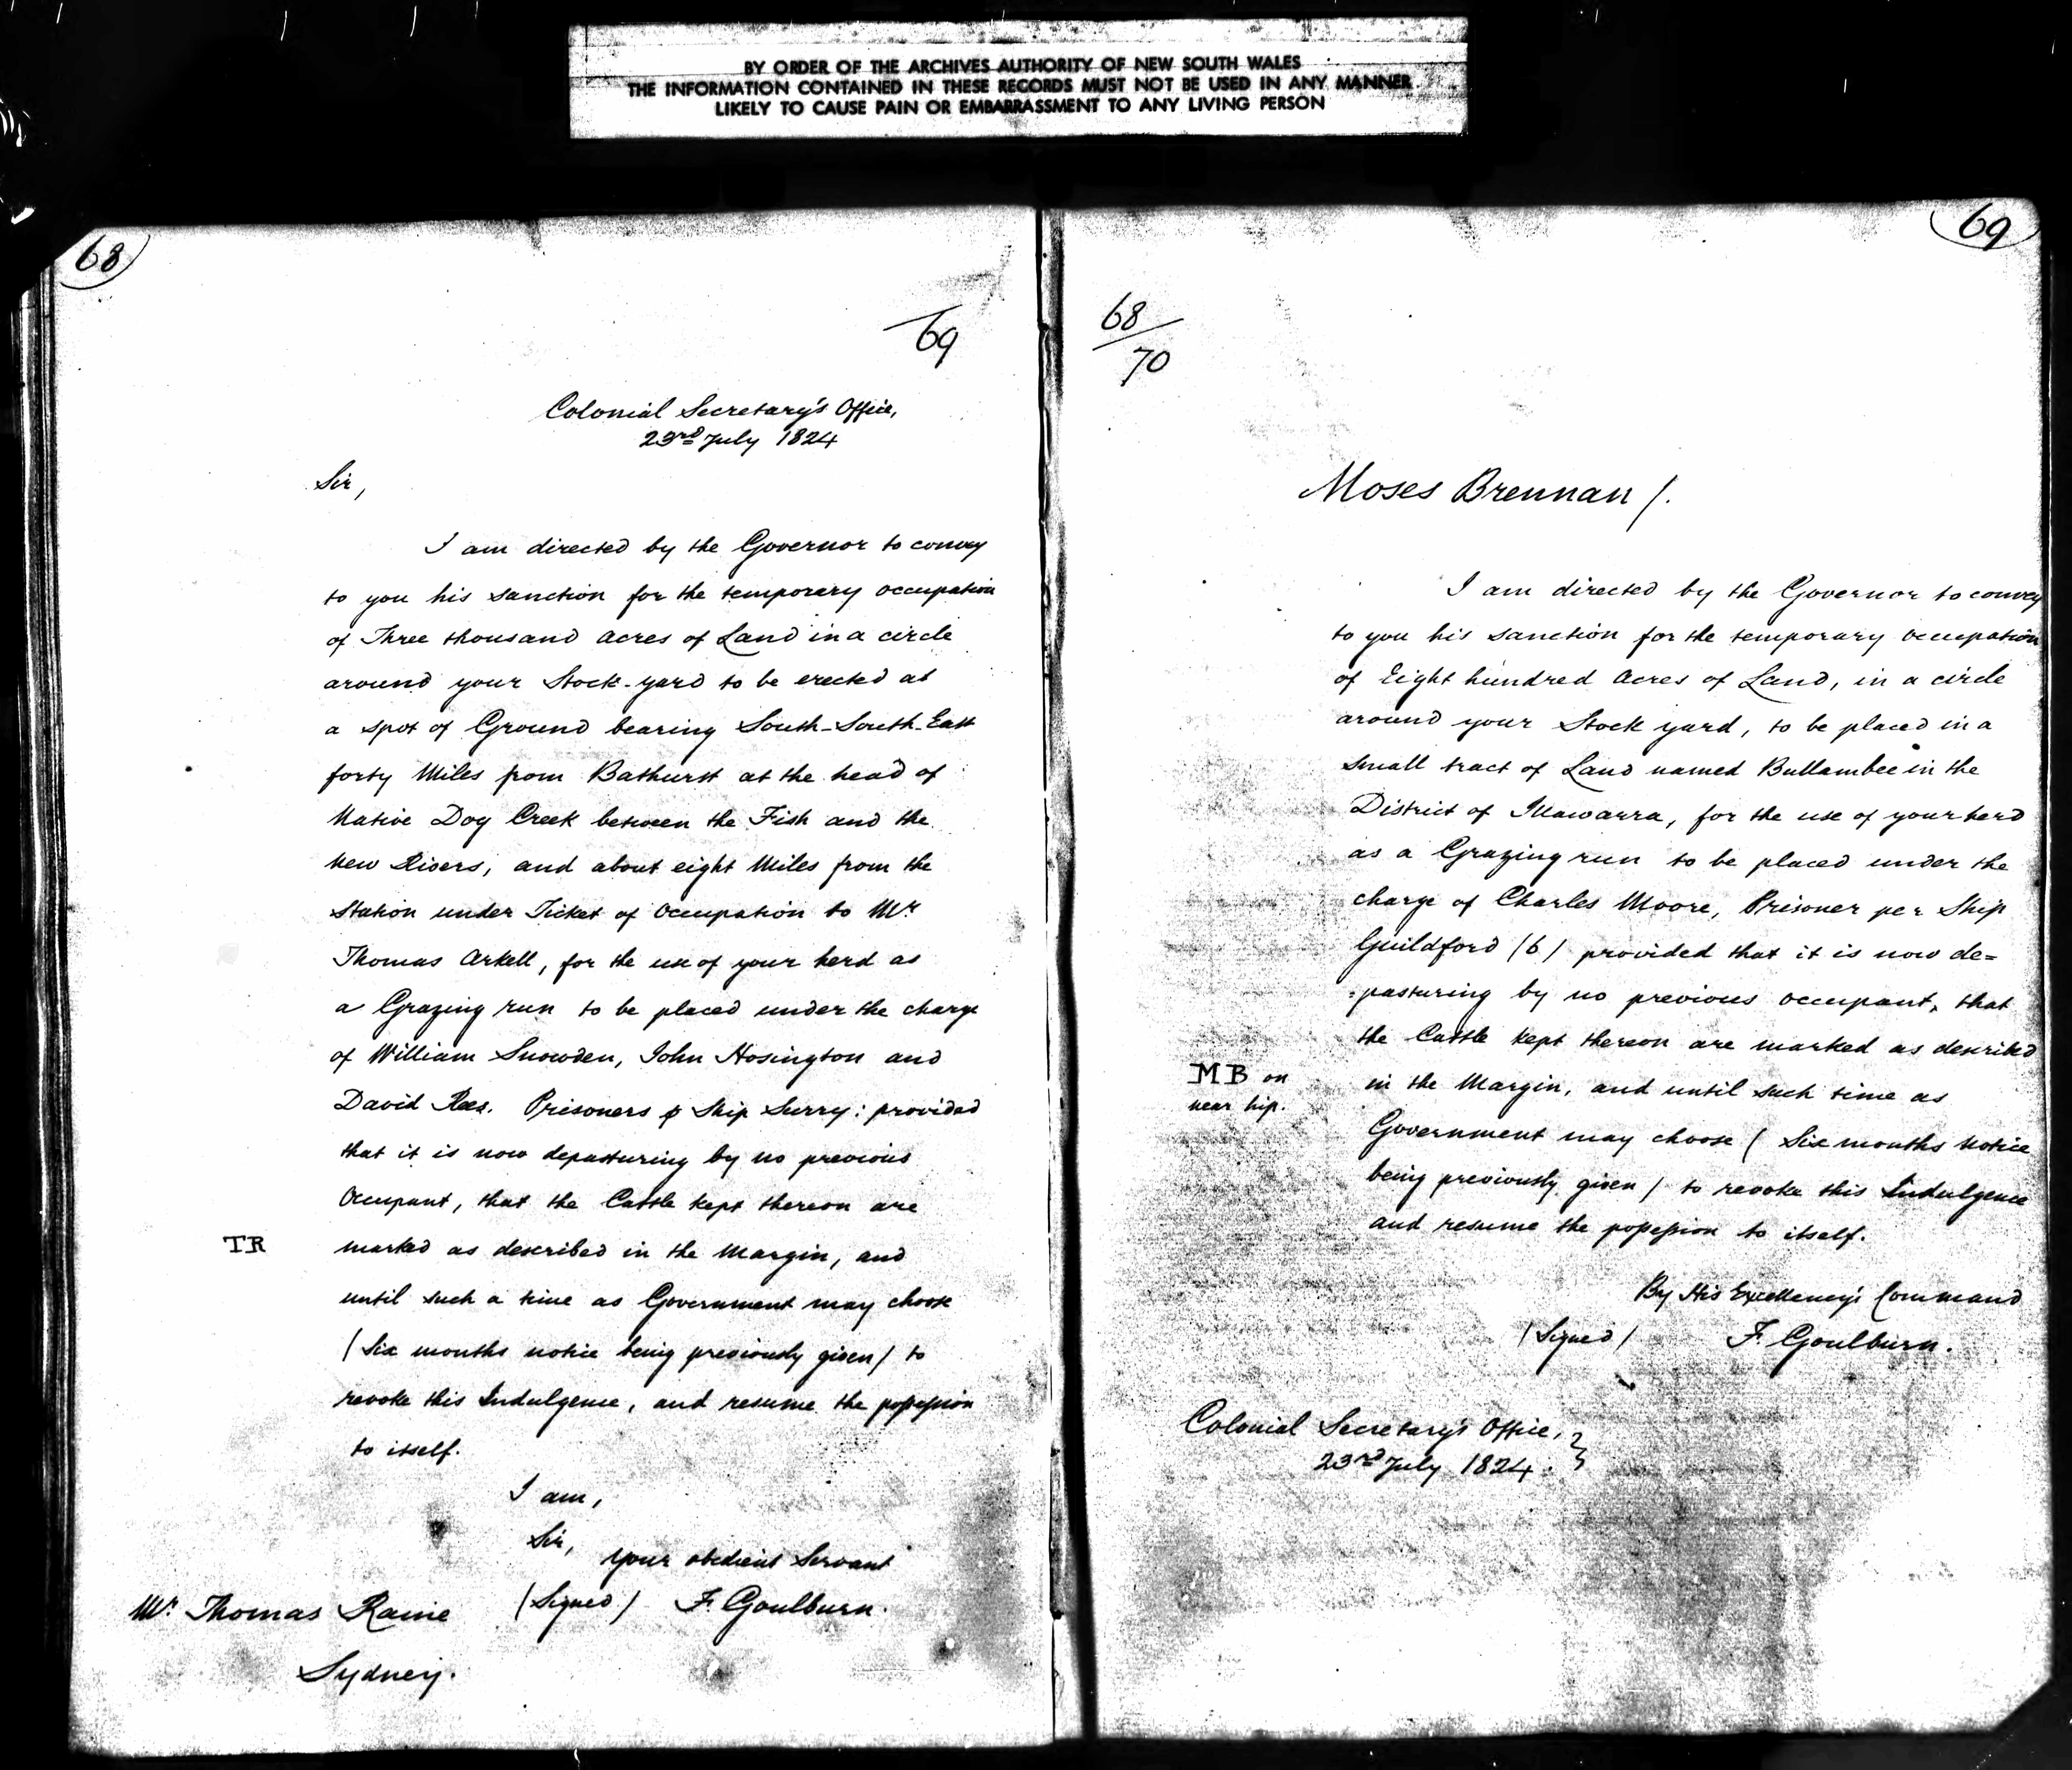 BY ORDER OF THE ARCHIVES AUTHORITY OF NEW SOUTH WALES
THE INFORMATION CONTAINED IN THESE RECORDS MUST NOT BE USED IN ANY MANNER
LIKELY TO CAUSE PAIN OR EMBARRASSMENT TO ANY LIVING PERSON
68
69
Colonial Secretary's Office,
23rd July 1824
Sir,
I am directed by the Governor to convey
to you his sanction for the temporary occupation
of Three thousand Acres of Land in a circle
around your Stock-yard to be erected at
a spot of Ground bearing South-South-East
forty Miles from Bathurst at the head of
Native Dog Creek between the Fish and the
New Rivers, and about eight Miles from the
Station under Ticket of Occupation to Mr
Thomas Arkell, for the use of your herd as
a Grazing run to be placed under the charge
of William Snowden, John Hosington and
David Rees. Prisoners p Ship Surry: provided
that it is now depasturing by no previous
Occupant, that the Cattle kept thereon are
TR
marked as described in the Margin, and
until such a time as Government may choose
/ Six months notice being previously given / to
revoke this Indulgence, and resume the possession
to itself.
I am,
Sir,
your obedient Servant
/ Signed / F. Goulburn.
Mr. Thomas Raine
Sydney.
69
68/70
Moses Brennan /.
I am directed by the Governor to convey
to you his sanction for the temporary occupation
of Eight hundred Acres of Land, in a circle
around your Stock yard, to be placed in a
small tract of Land named Bullambee in the
District of Illawarra, for the use of your herd
as a Grazing run to be placed under the
charge of Charles Moore, Prisoner per Ship
Guildford /6/ provided that it is now de=
=pasturing by no previous occupant, that
the Cattle kept thereon are marked as described
MB on
near hip.
in the Margin, and until such time as
Government may choose ( Six months notice
being previously given / to revoke this Indulgence
and resume the possession to itself.
By His Excellency's Command
/ Signed / F. Goulburn.
Colonial Secretary's Office, }
23rd July 1824. }